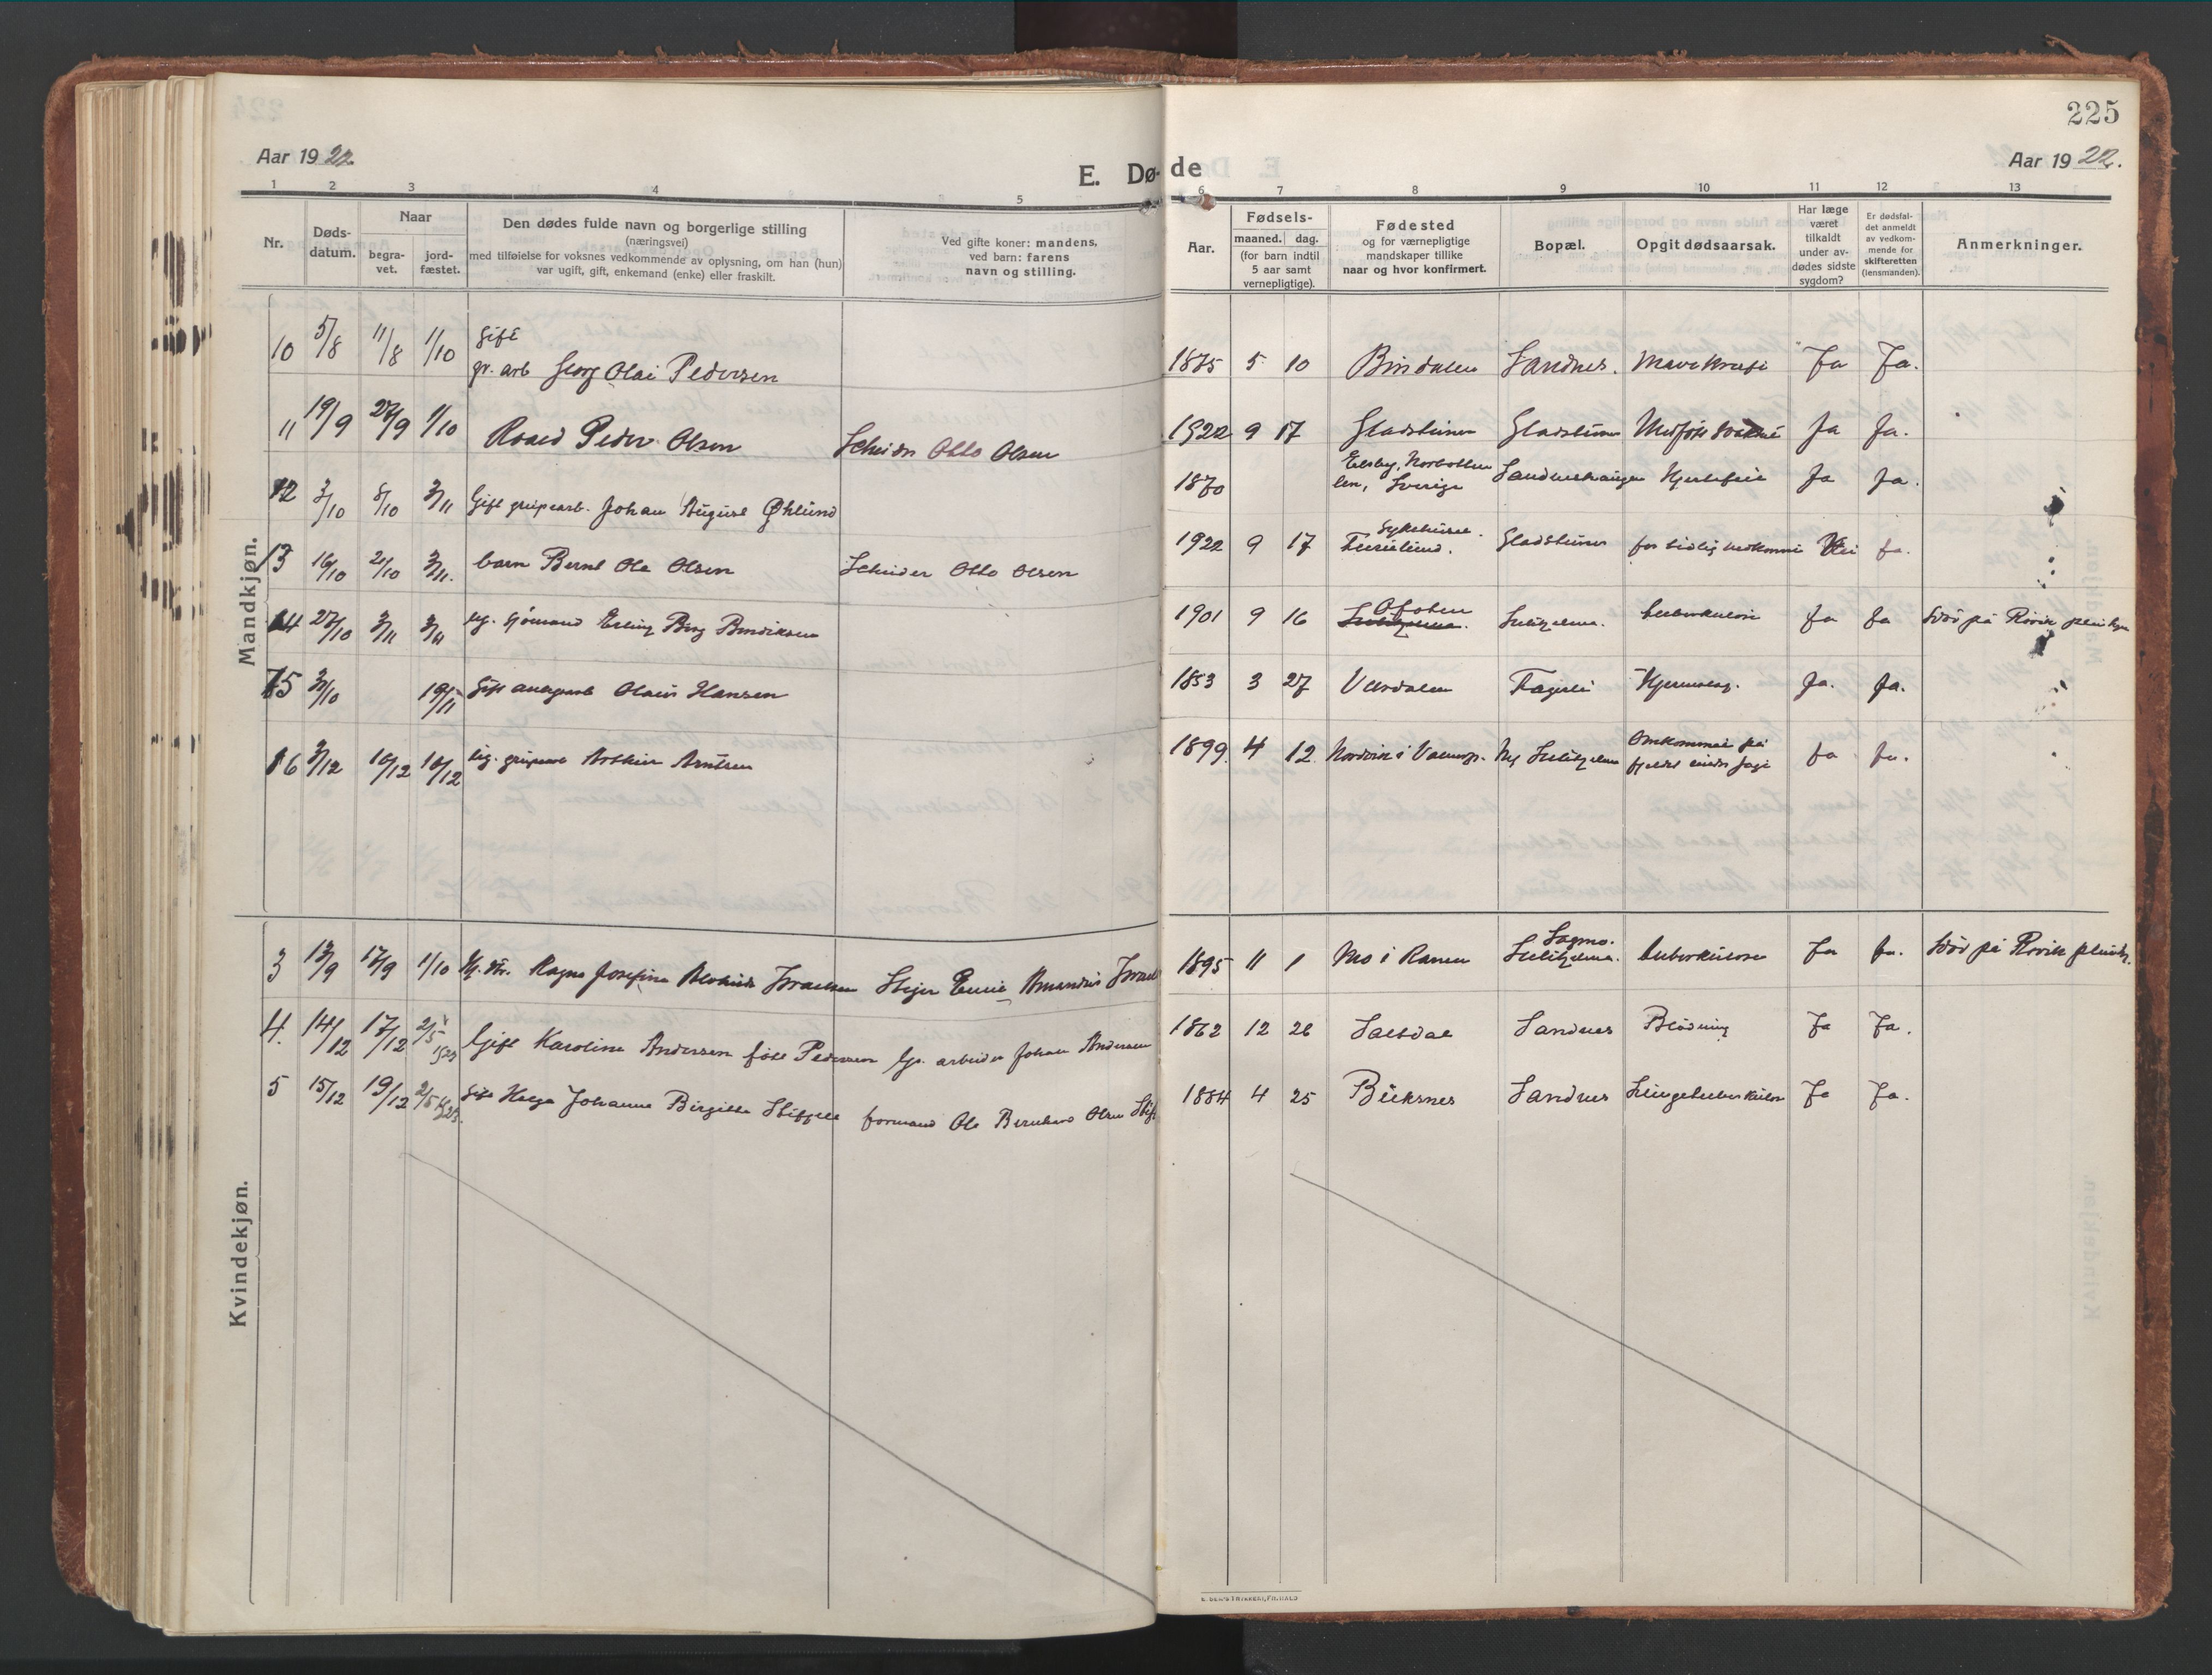 225
Aar 1922.
E. Døde
Aar 1922.
1 2 3 4 5 6 7 8 9 10 11 12 13
Nr.
Døds-
datum.
Naar
begra-
vet.
jord-
fæstet.
Den dødes fulde navn og borgerlige stilling
(næringsvei)
med tilføielse for voksnes vedkommende av oplysning, om han (hun)
var ugift, gift, enkemand (enke) eller fraskilt.
Ved gifte koner: mandens,
ved barn: farens
navn og stilling.
Aar.
Fødsels-
maaned. dag.
(for barn indtil
5 aar samt
vernepligtige).
Fødested
og for værnepligtige
mandskaper tillike
naar og hvor konfirmert.
Bopæl.
Opgit dødsaarsak.
Har læge
været
tilkaldt
under av-
dødes sidste
sygdom?
Er dødsfal-
det anmeldt
av vedkom-
mende for
skifteretten
(lensmanden).
Anmerkninger.
Mandkjøn.
Gift
10 5/8 11/8 1/10 gr. arb Georg Olai Pedersen 1875 5 10 Bindalen Sandnes. Mavekræft Ja Ja.
11 19/9 27/9 1/10 Roald Peder Olsen Scheider Otto Olsen 1922 9 17 Gladsteiner Gladsteiner Medfødt svakhet Ja Ja.
12 3/10 8/10 3/11 Gift grupearb. Johan August Øhlund 1870 Elsby, Norbotten
len, Sverige Hjertefeil Ja Ja.
13 16/10 21/10 3/11. barn Bernt Ole Olsen Scheider Otto Olsen 1922 9 17 Sykehuset
Furulund. Gladsteiner for tidlig nedkomst Nei Ja.
14 27/10 3/11 3/11 ug. sjømand Erling Berg Bendiksen 1901 9 16 Ofoten
Sulitjelma. Sulitjelma. tuberkulose Ja Ja Død på Røvik pleiehjem
15 31/10 19/11 Gift Olaus Hansen 1853 3 27 Værdalen Fagerli Ja. Ja.
16 3/12 10/12 10/12 ug. grupearb Arthur Arntsen 1899 4 12. Nordvik i Ny Sulitjelma Omkommet på
fjeldet under jagt Ja Ja.
Kvindekjøn.
3 13/9 17/9 1/10 Ragna Josefine Israelsen Stiger Amandus 1895 11 1 Mo i Ranen Sagmo.
Sulitjelma. tuberkulose Ja Ja. Død på Røvik pleiehj.
4. 14/12 17/12 2/5 1923 Gift Karoline Andersen født Pedersen Gr. arbeider Johan Andersen 1862 12 26 Saltdal Sandnes Blødning Ja Ja.
5 15/12 19/12 2/5 1923. Gift Helga Johanne Birgitte formand Ole Bernhard Olsen 1884 4 25 Buksnes Sandnes Lungetuberkulose Ja Ja.